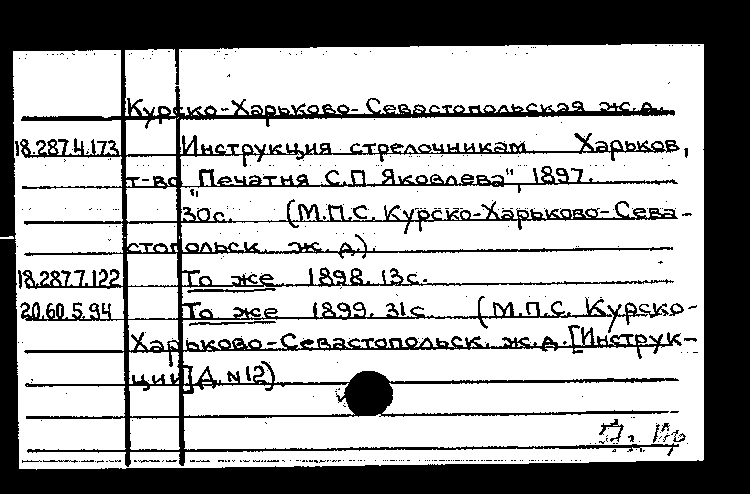 Курско-Харьково-Севастопольская ж.д.
18.287.4.173 Инструкция стрелочникам Харьков,
т-во „Печатня С.П Яковлева", 1897.
30с. (М.П.С. Курско-Харьково-Сева-
стопольск. ж. д.).
18.287.7.122 То же 1898. 13с.
20.60.5.94 То же 1899. 31с (М.П.С. Курско-
Харьково-Севастопольск. ж.д. [Инструк-
ции] Д. N 12).